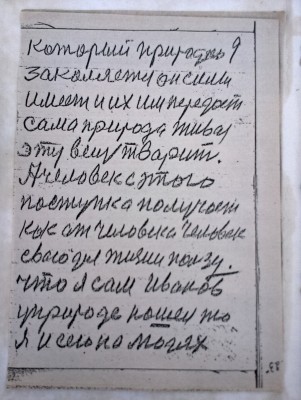 который природою
закаляется он сили
имеет и их им передает
сама природа жива
эту вещ творит.
А человек с этого
поступка получает
как от человека человек
свого для жизни ползу.
что я сам Иванов
у природе нашел то
я и сено на могях
83